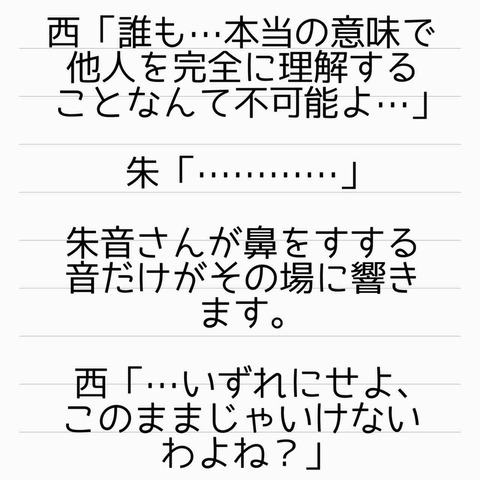 西「誰も…本当の意味で
他人を完全に理解する
ことなんて不可能よ…」
朱「…………」
朱音さんが鼻をすする
音だけがその場に響き
ます。
西「…いずれにせよ、
このままじゃいけない
わよね？」